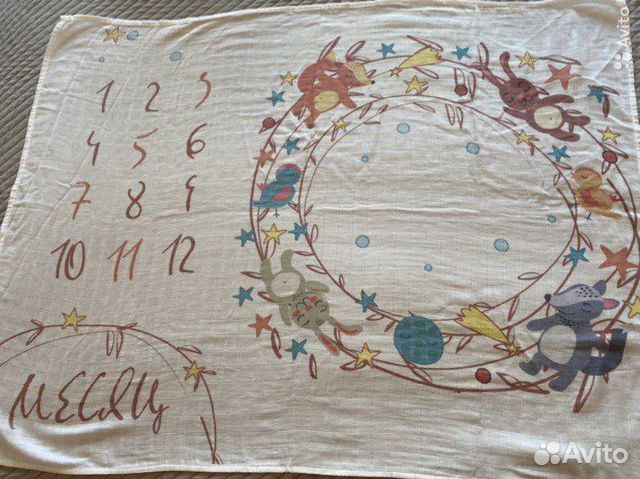 Avito
1 2 3
4 5 6
7 8 9
10 11 12
МЕСЯЦ
Avito